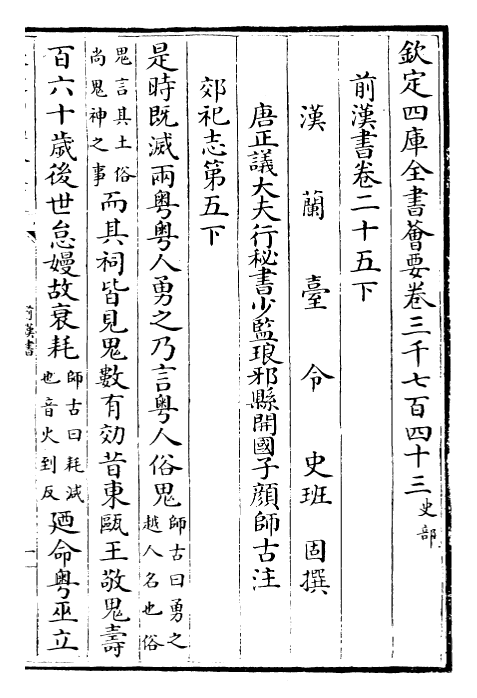 欽定四庫全書薈要卷三千七百四十三史部
前漢書卷二十五下
漢蘭臺令史班固撰
唐正議大夫行秘書少監琅邪縣開國子顔師古注
郊祀志第五下
是時既滅兩粵粵人勇之乃言粵人俗鬼師古曰勇之越人名也俗
鬼言其土俗尚鬼神之事而其祠皆見鬼數有効昔東甌王敬鬼壽
百六十歲後世怠嫚故衰耗師古曰耗減也音火到反廼命粵巫立
前漢書
一